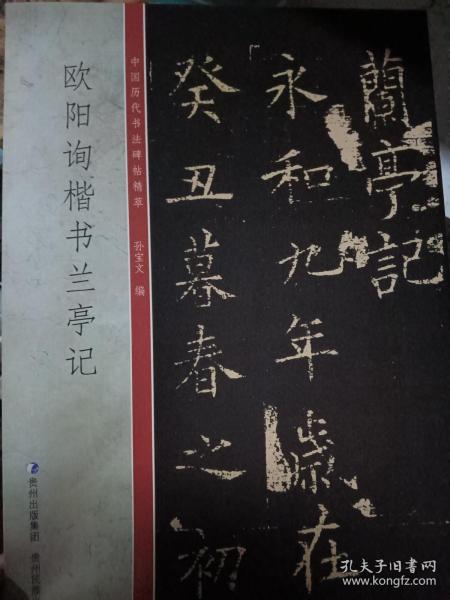 蘭亭記
永和九年歲在
癸丑暮春之初
中国历代书法碑帖精萃 孙宝文 编
欧阳询楷书兰亭记
贵州出版集团 贵州民族
孔夫子旧书网
www.kongfz.com